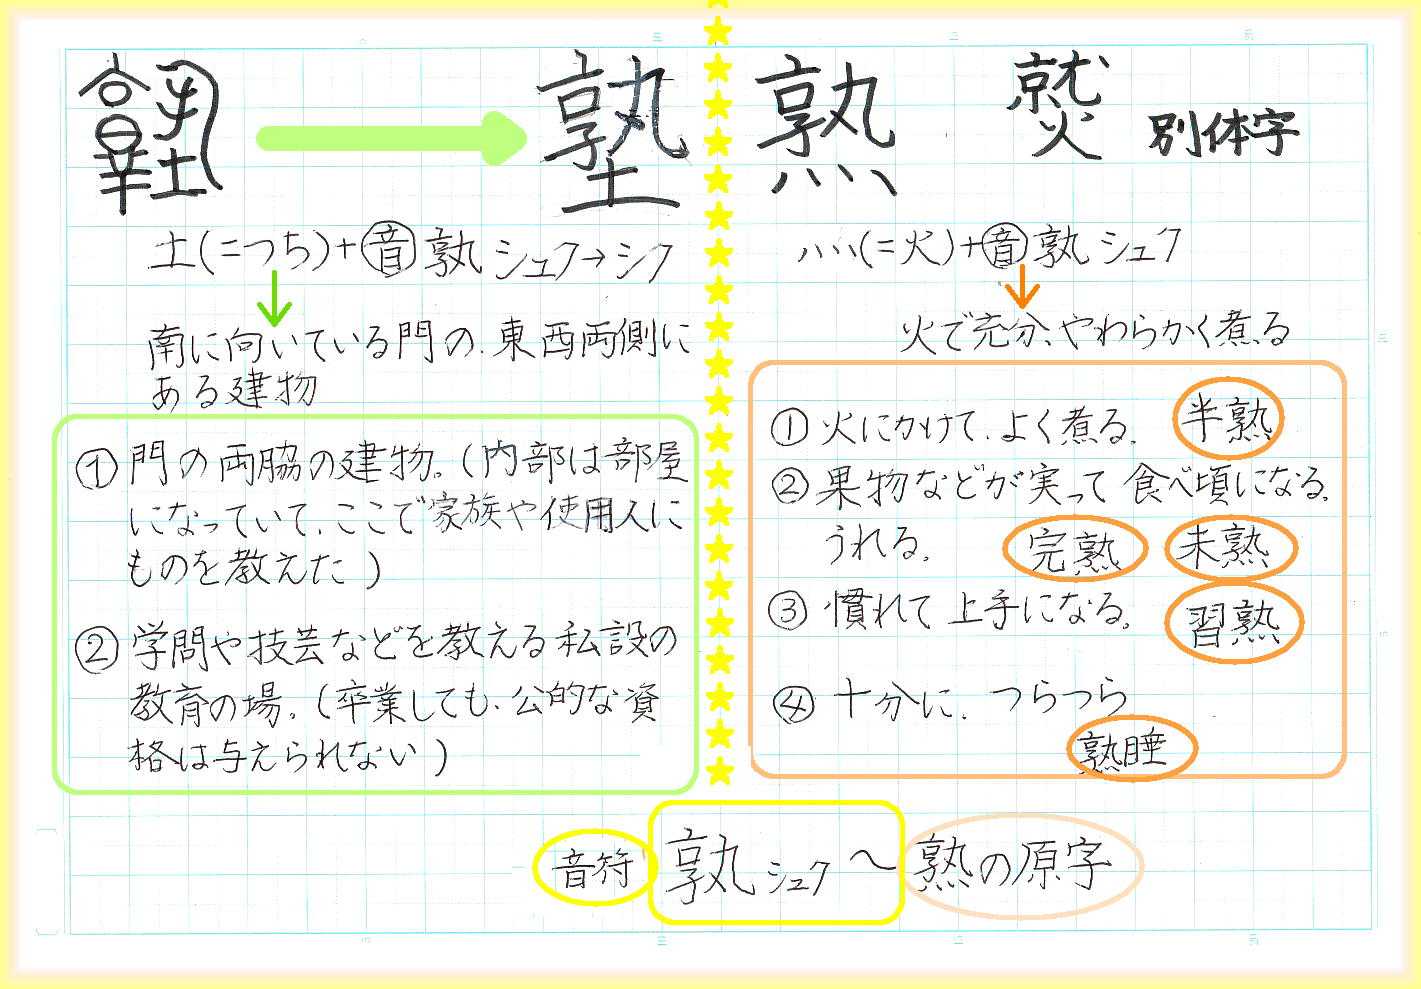 塾
土(=つち)+音 孰 シュク→ジク
南に向いている門の、東西両側に
ある建物
① 門の両脇の建物。(内部は部屋
になっていて、ここで家族や使用人に
ものを教えた)
② 学問や技芸などを教える私設の
教育の場。(卒業しても、公的な資
格は与えられない)
熟 別体字
灬(=火)+音 孰 シュク
火で充分、やわらかく煮る
① 火にかけて、よく煮る。 半熟
② 果物などが実って食べ頃になる。
うれる。 完熟 未熟
③ 慣れて上手になる。 習熟
④ 十分に、つらつら
熟睡
音符 孰 シュク 〜 熟の原字